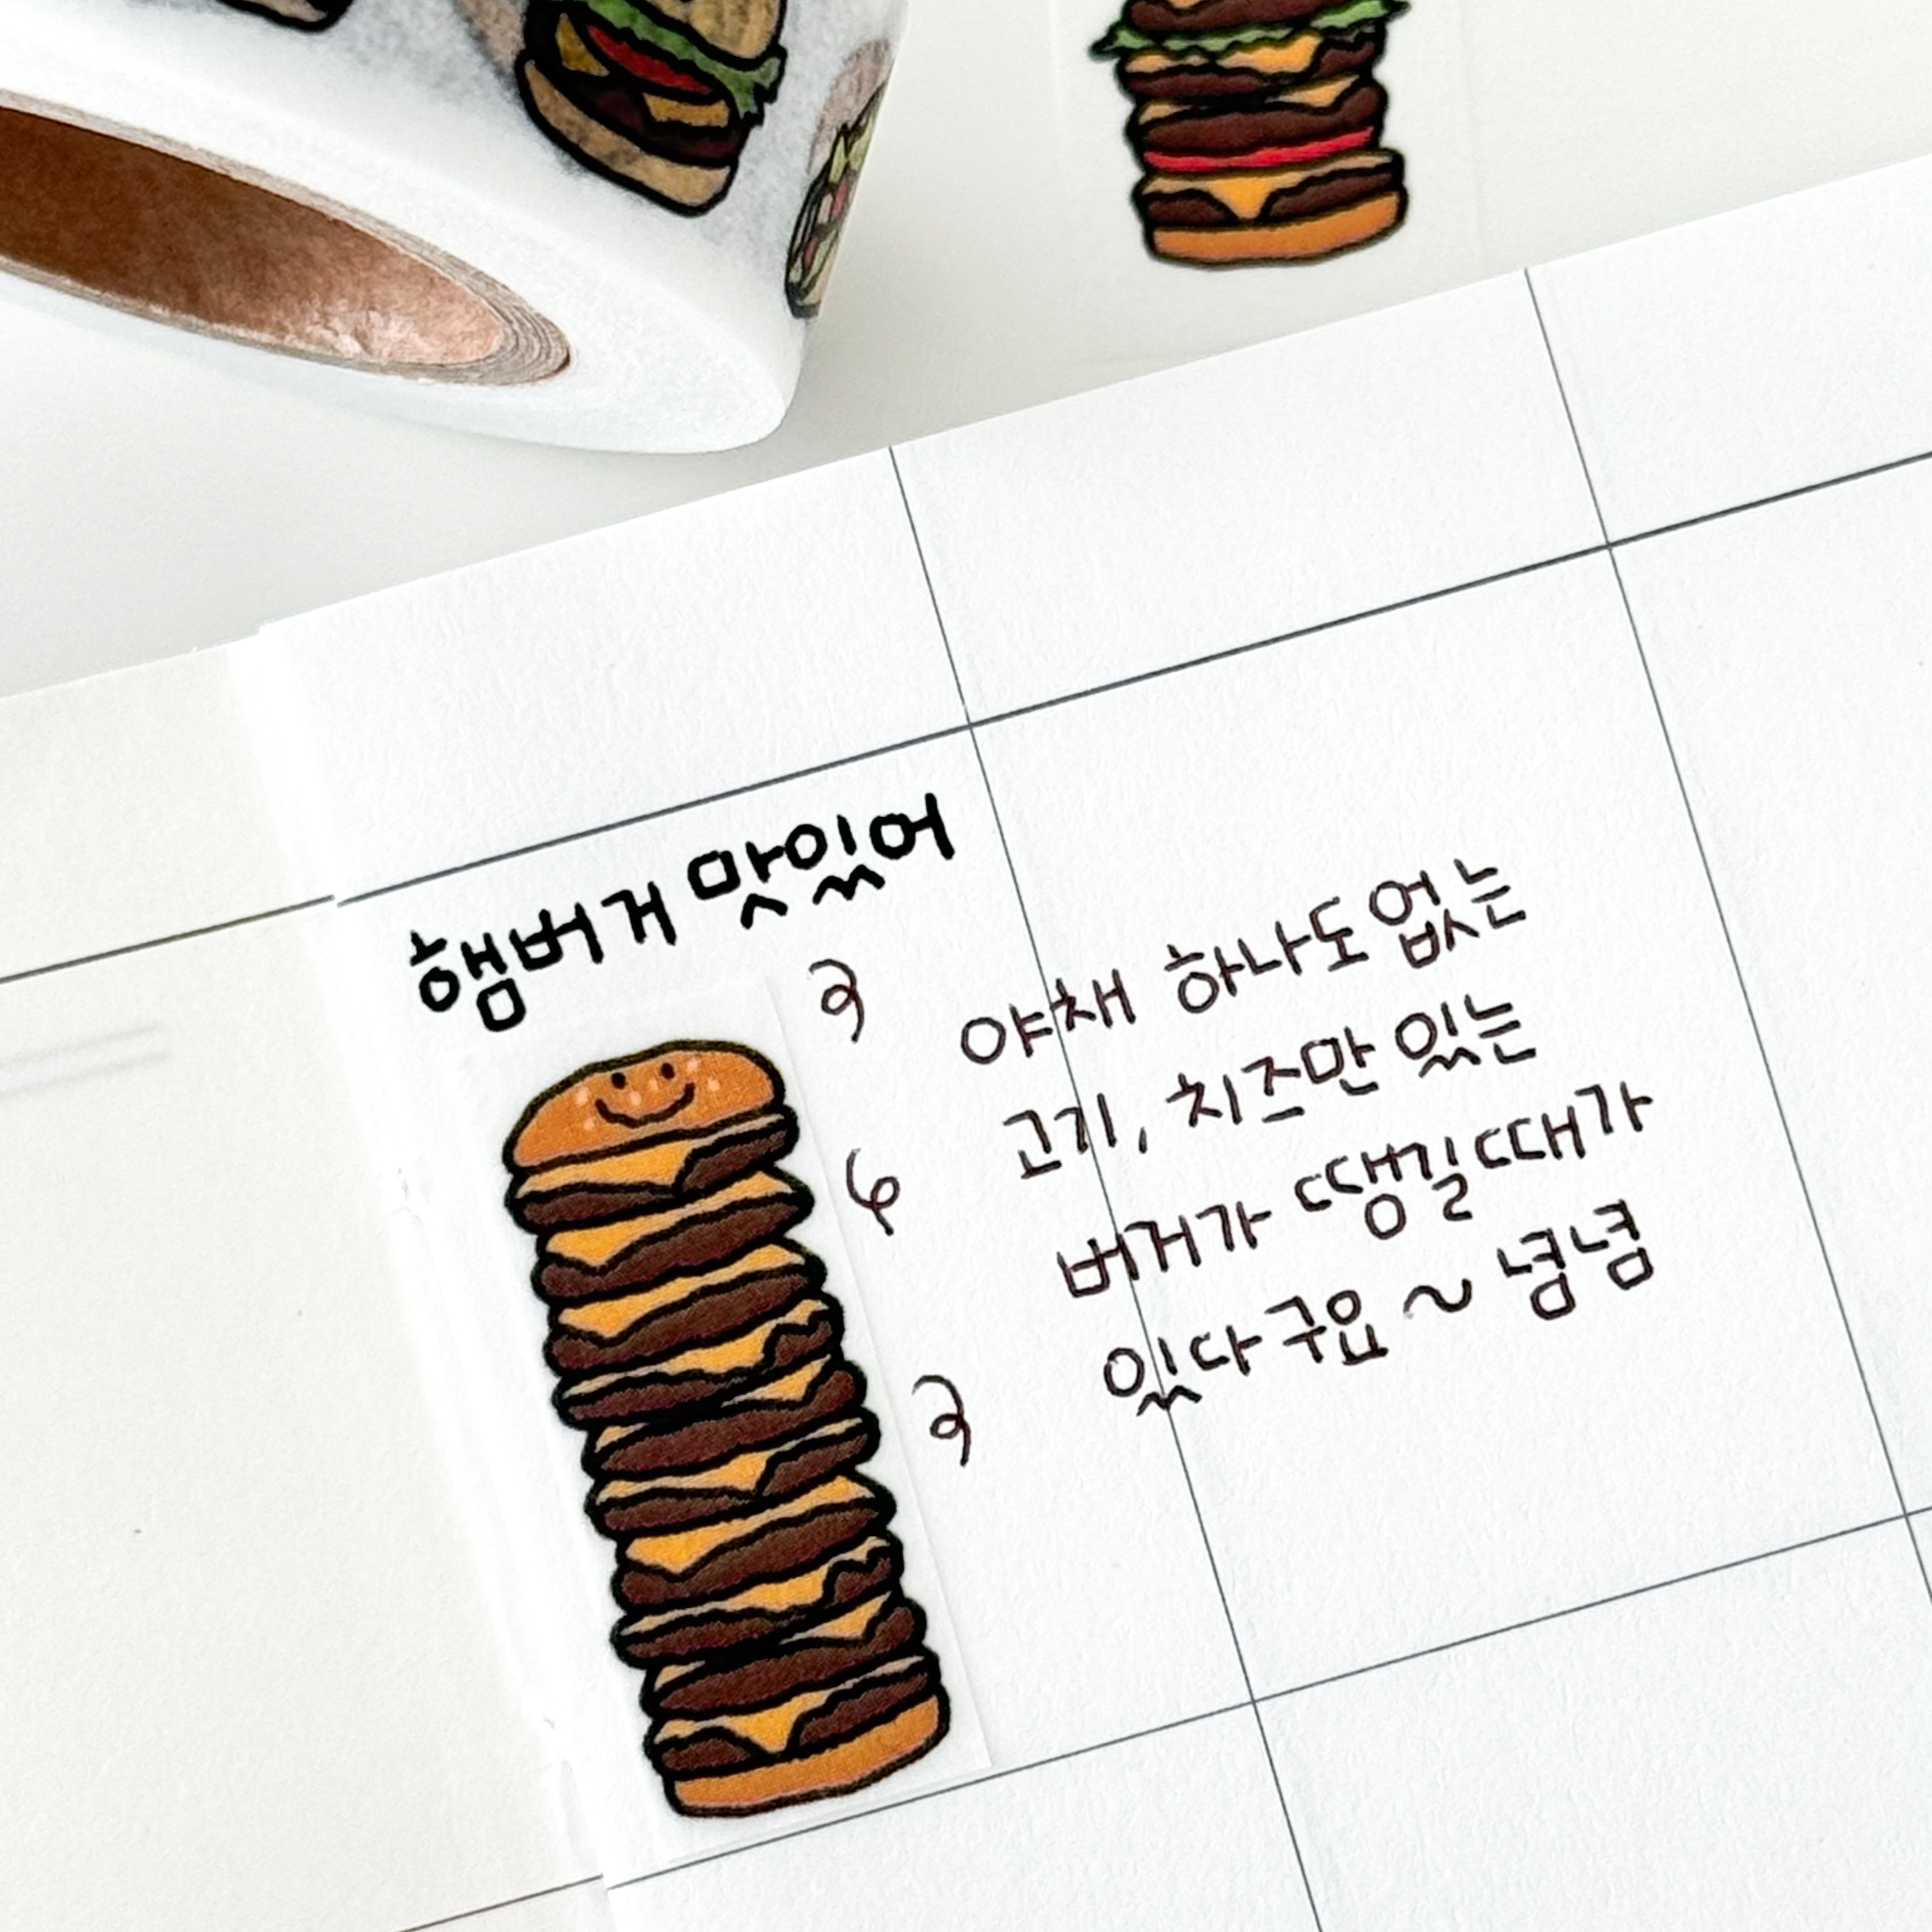 햄버거 맛있어
야채 하나도 없는
고기, 치즈만 있는
버거가 땡길때가
있다구요~ 념념